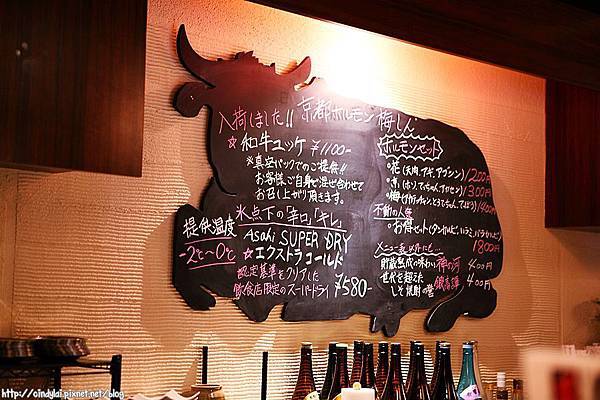 京都ホルモン梅しん
入荷しました!!
☆和牛ユッケ ¥1100-
※真空パックでのご提供!!
お客様ご自身で混ぜ合わせて
お召し上がり頂きます。
提供温度
-2℃〜0℃
氷点下の「辛口」「キレ」
Asahi SUPER DRY
☆エクストラコールド
認定基準をクリアした
飲食店限定のスーパードライ ¥580-
ホルモンセット
1200円
1300円
1400円
不動の人気
お得セット
1800円
メニュー表以外にも…
貯蔵熟成の味わい 神の河 400円
世代を超えた
しそ焼酎の誉 鍛高譚 400円
http://cindylai.pixnet.net/blog